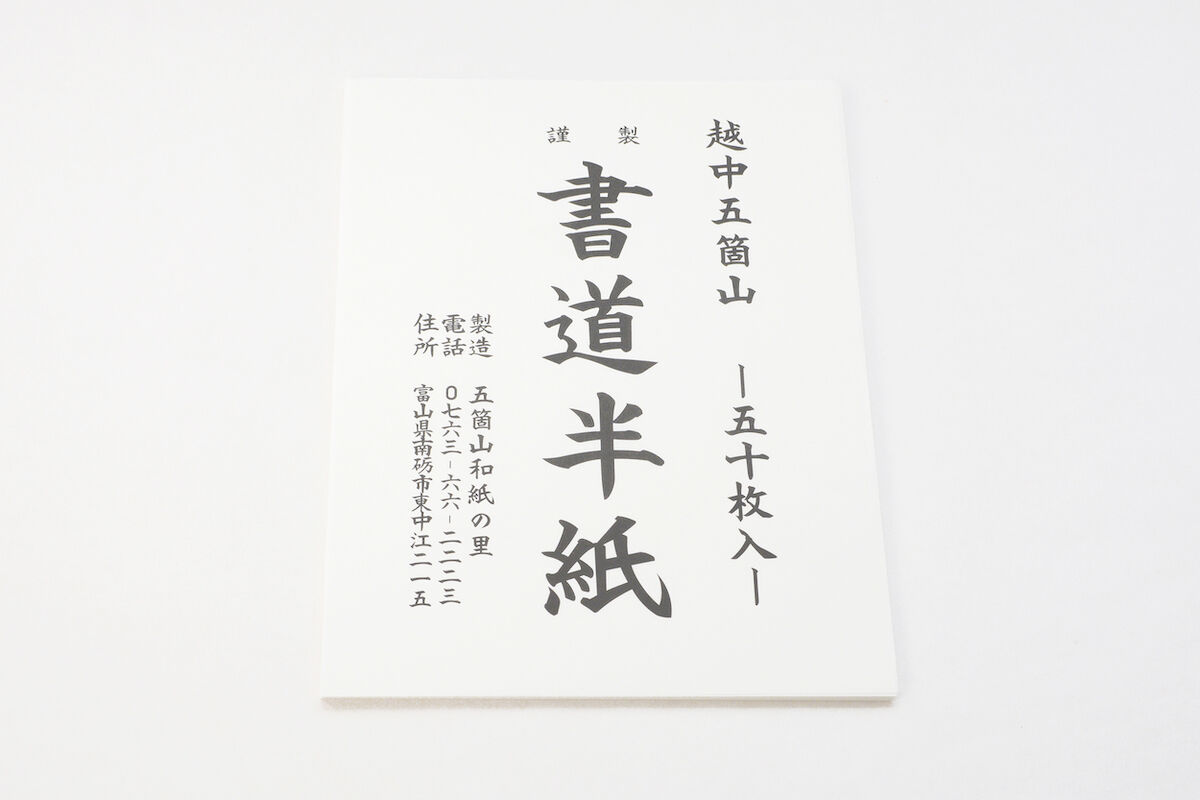 越中五箇山 ー五十枚入ー
謹製
書道半紙
製造 五箇山和紙の里
電話 0七六三-六六-二二二三
住所 富山県南砺市東中江二一五